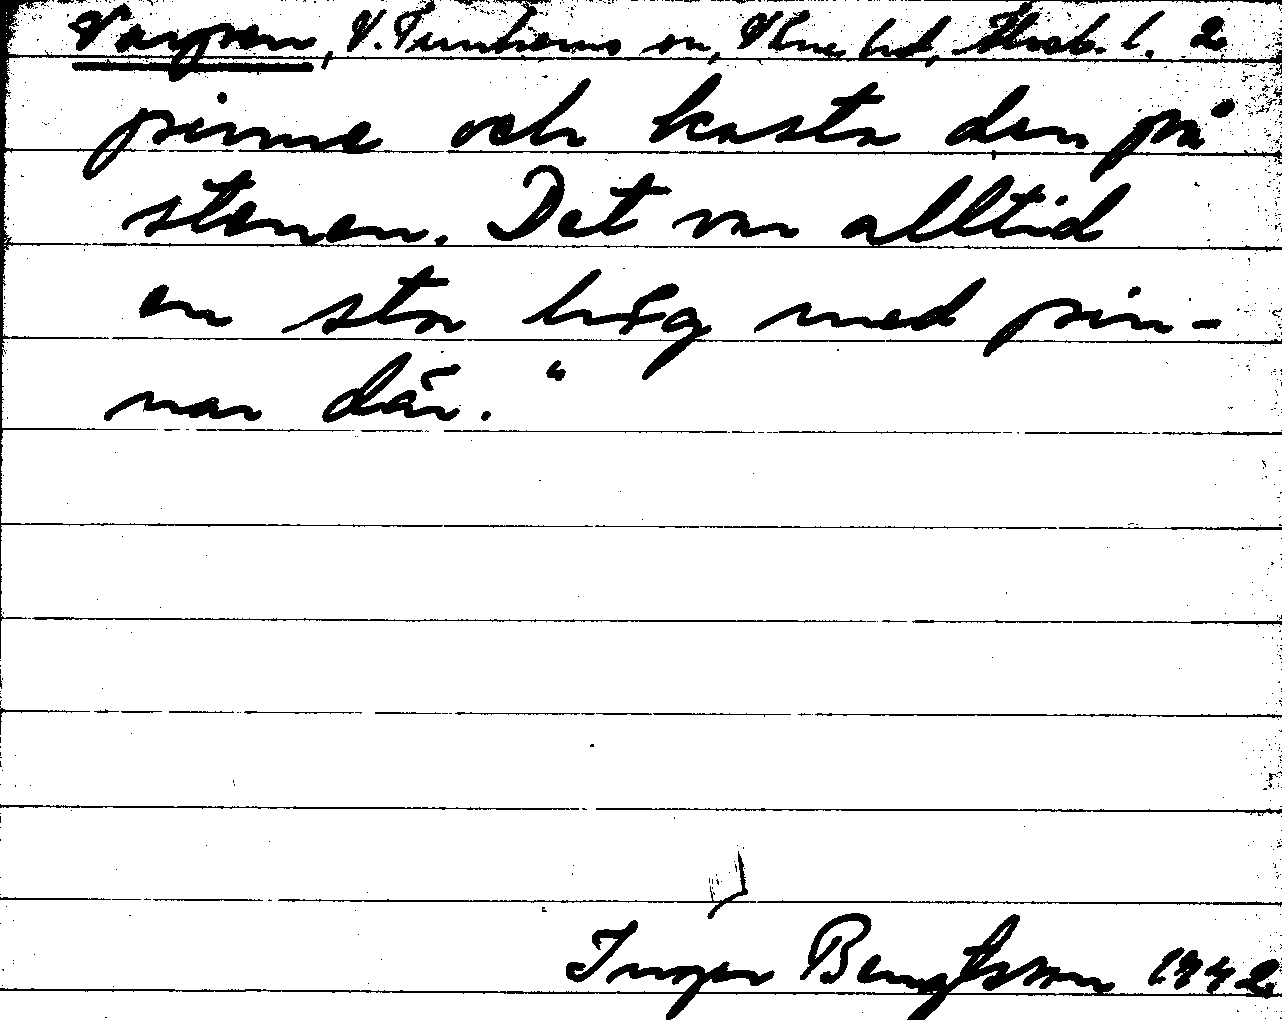 Vargöen, V. Tunhems sn, Väne hd, Älvsb. l. 2
pinne och kasta den på
stenen. Det var alltid
en stor hög med pin-
nar där."
Inger Bengtsson 1942